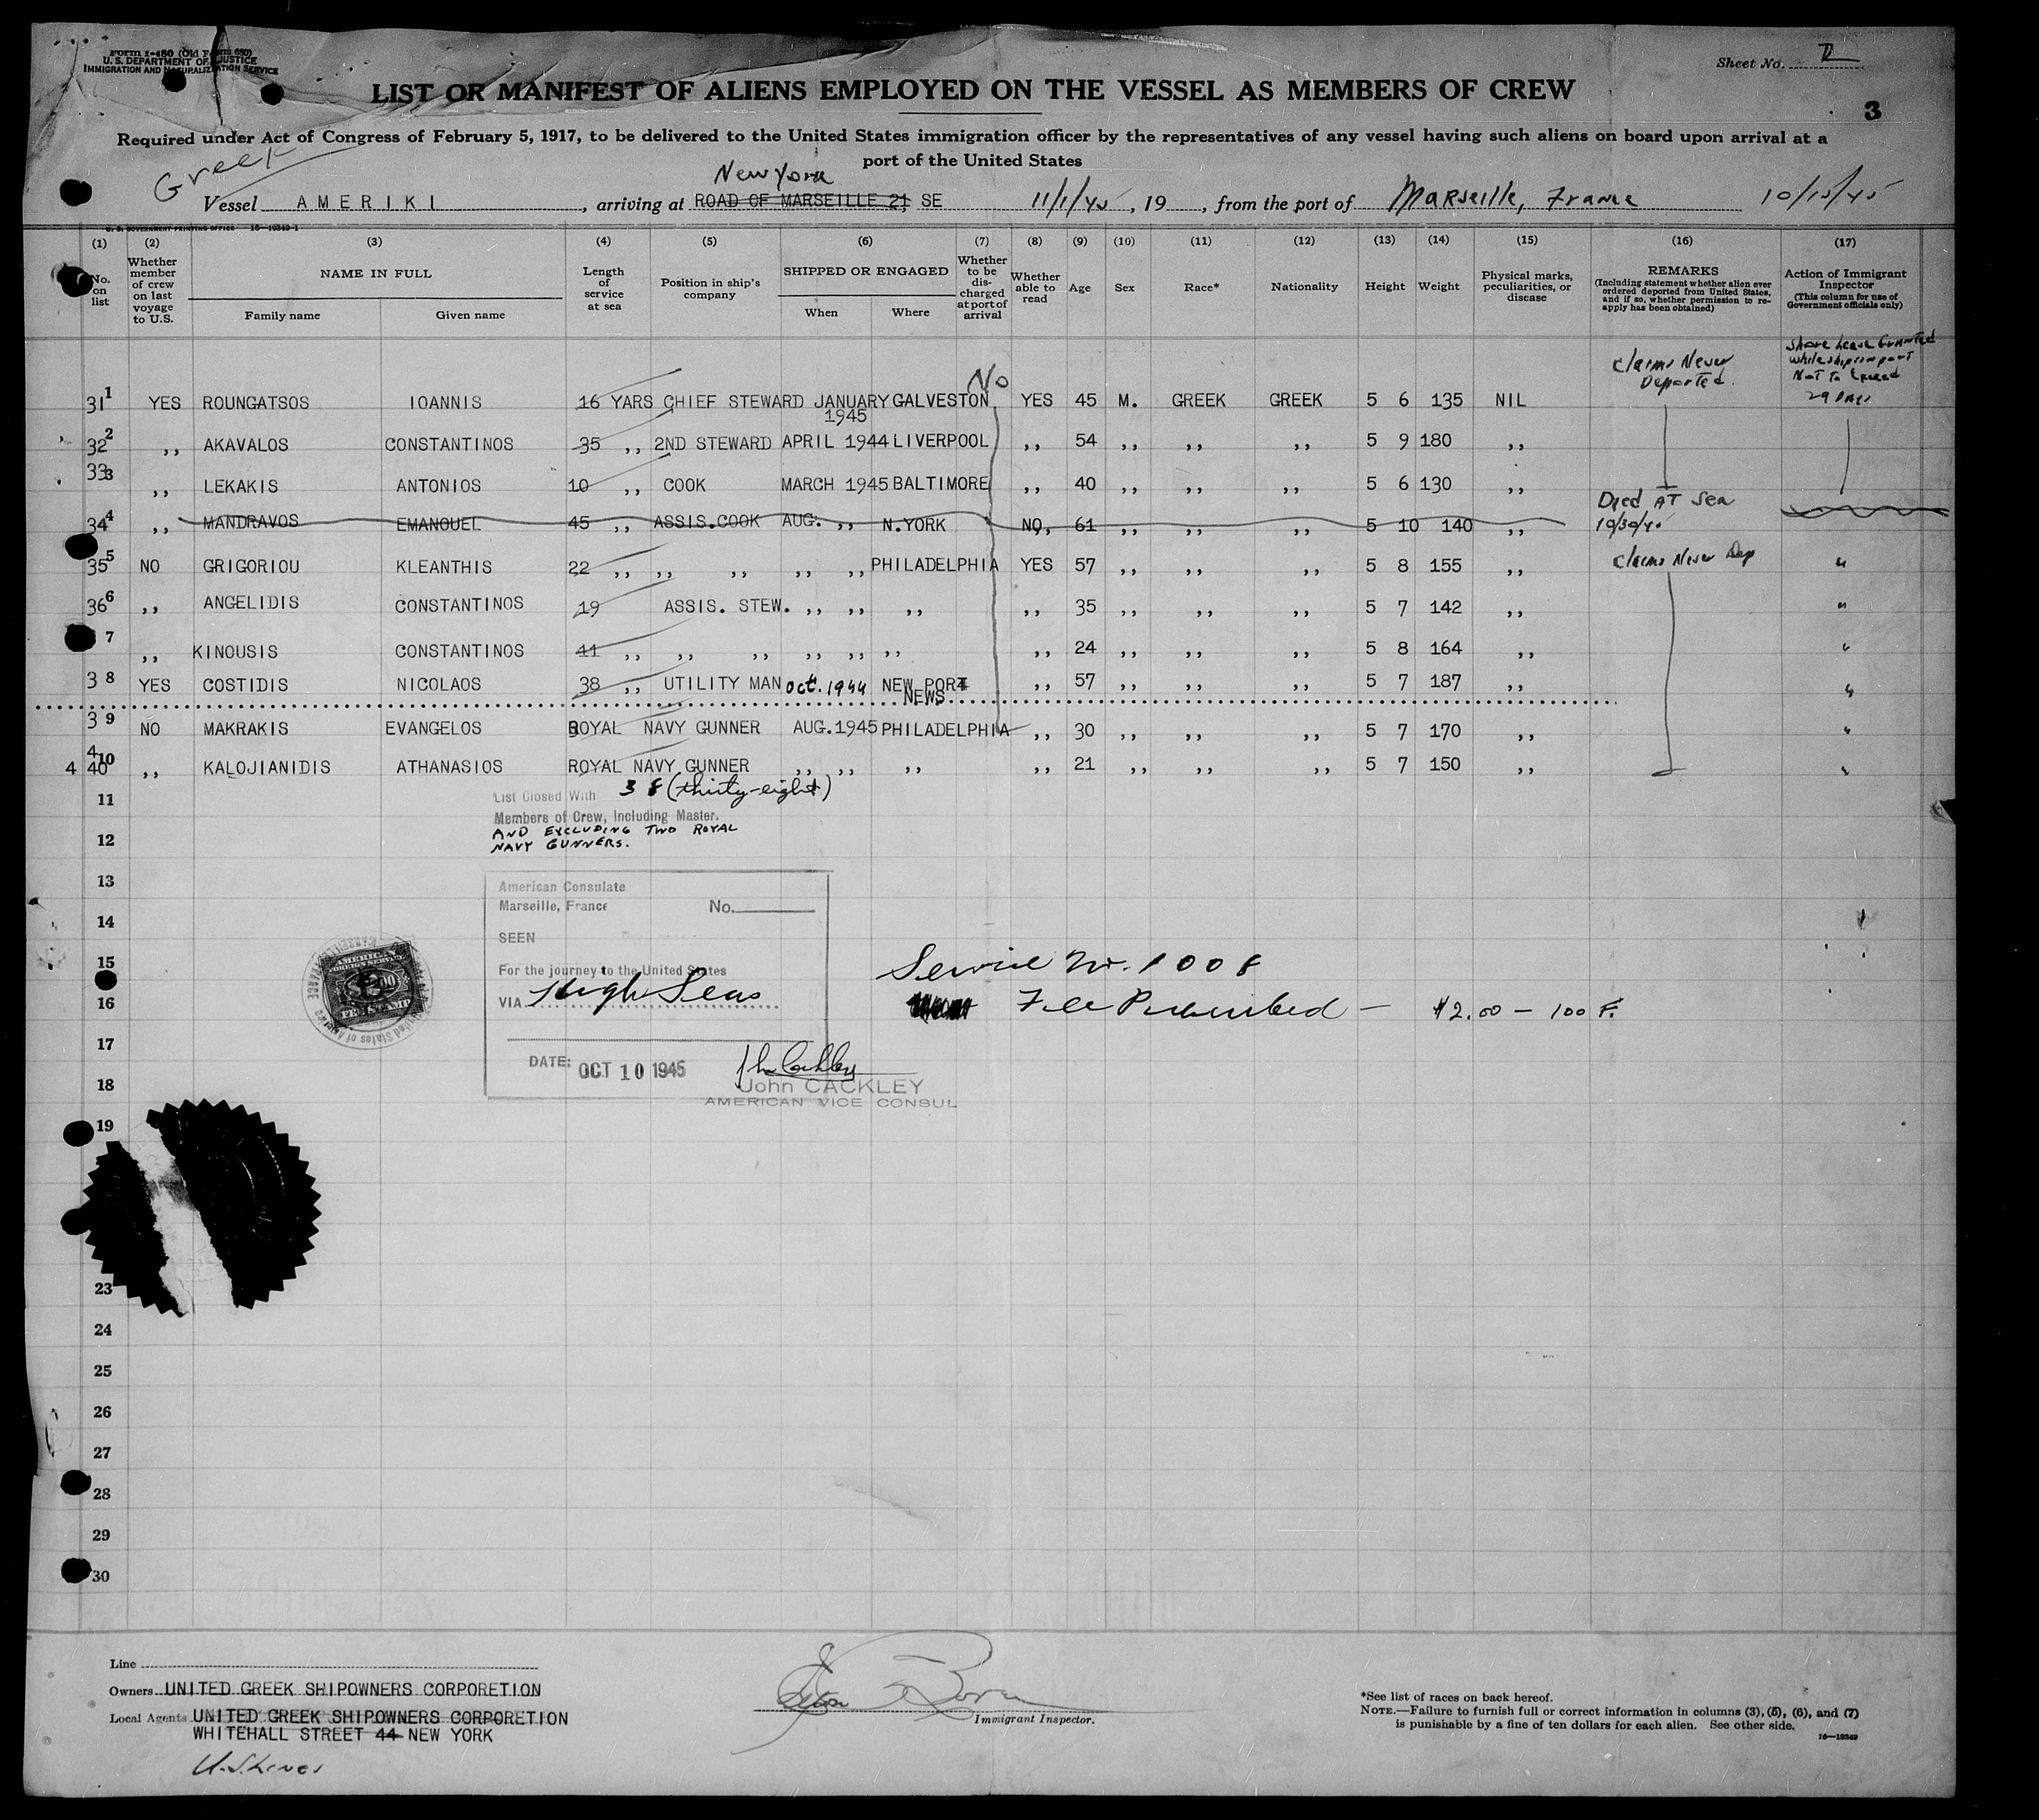 Form I-480 (Old Form 680)
U. S. DEPARTMENT OF JUSTICE
IMMIGRATION AND NATURALIZATION SERVICE
Sheet No. 2
LIST OR MANIFEST OF ALIENS EMPLOYED ON THE VESSEL AS MEMBERS OF CREW
3
Required under Act of Congress of February 5, 1917, to be delivered to the United States immigration officer by the representatives of any vessel having such aliens on board upon arrival at a
port of the United States
Greek
New York
Vessel AMERIKI, arriving at ROAD OF MARSEILLE 21 SE 11/1/45, 19, from the port of Marseille, France 10/15/45
U. S. GOVERNMENT PRINTING OFFICE 16—19349-1
(1) (2) (3) (4) (5) (6) (7) (8) (9) (10) (11) (12) (13) (14) (15) (16) (17)
No. on list
Whether member of crew on last voyage to U.S.
NAME IN FULL
Family name Given name
Length of service at sea
Position in ship's company
SHIPPED OR ENGAGED
When Where
Whether to be discharged at port of arrival
Whether able to read
Age
Sex
Race*
Nationality
Height
Weight
Physical marks, peculiarities, or disease
REMARKS
(Including statement whether alien ever ordered deported from United States, and if so, whether permission to reapply has been obtained)
Action of Immigrant Inspector
(This column for use of Government officials only)
No
Claims Never Deported.
Shore Leave Granted while ship in port Not To Exceed 29 Days
31 1 YES ROUNGATSOS IOANNIS 16 YARS CHIEF STEWARD JANUARY 1945 GALVESTON YES 45 M. GREEK GREEK 5 6 135 NIL
32 2 ,, AKAVALOS CONSTANTINOS 35 ,, 2ND STEWARD APRIL 1944 LIVERPOOL ,, 54 ,, ,, ,, 5 9 180 ,,
33 3 ,, LEKAKIS ANTONIOS 10 ,, COOK MARCH 1945 BALTIMORE ,, 40 ,, ,, ,, 5 6 130 ,,
34 4 ,, MANDRAVOS EMANOUEL 45 ,, ASSIS.COOK AUG. ,, N.YORK NO, 61 ,, ,, ,, 5 10 140 ,, Died AT Sea 10/30/45
35 5 NO GRIGORIOU KLEANTHIS 22 ,, ,, ,, ,, ,, PHILADELPHIA YES 57 ,, ,, ,, 5 8 155 ,, Claims Never Dep "
36 6 ,, ANGELIDIS CONSTANTINOS 19 ASSIS. STEW. ,, ,, ,, ,, 35 ,, ,, ,, 5 7 142 ,, "
7 ,, KINOUSIS CONSTANTINOS 11 ,, ,, ,, ,, ,, ,, ,, 24 ,, ,, ,, 5 8 164 ,, "
3 8 YES COSTIDIS NICOLAOS 38 ,, UTILITY MAN Oct. 1944 NEW PORT NEWS ,, 57 ,, ,, ,, 5 7 187 ,, "
3 9 NO MAKRAKIS EVANGELOS ROYAL NAVY GUNNER AUG.1945 PHILADELPHIA ,, 30 ,, ,, ,, 5 7 170 ,, "
4 40 10 ,, KALOJIANIDIS ATHANASIOS ROYAL NAVY GUNNER ,, ,, ,, ,, 21 ,, ,, ,, 5 7 150 ,, "
11
List Closed With 38 (thirty-eight)
Members of Crew, Including Master.
AND EXCLUDING TWO ROYAL
NAVY GUNNERS.
12
13
American Consulate
Marseille, France No.
14
SEEN
15
For the journey to the United States
VIA High Seas
16
Service Nr. 1008
Fee Prescribed — $2.00 — 100 F.
AMERICAN
FOREIGN SERVICE
FEE STAMP
17
DATE: OCT 10 1945
John CACKLEY
AMERICAN VICE CONSUL
18
19
23
24
25
26
27
28
29
30
Line
Owners UNITED GREEK SHIPOWNERS CORPORETION
Local Agents UNITED GREEK SHIPOWNERS CORPORETION
WHITEHALL STREET 44 NEW YORK
U.S. Lines
Immigrant Inspector.
*See list of races on back hereof.
NOTE.—Failure to furnish full or correct information in columns (3), (5), (6), and (7)
is punishable by a fine of ten dollars for each alien. See other side.
16—19349